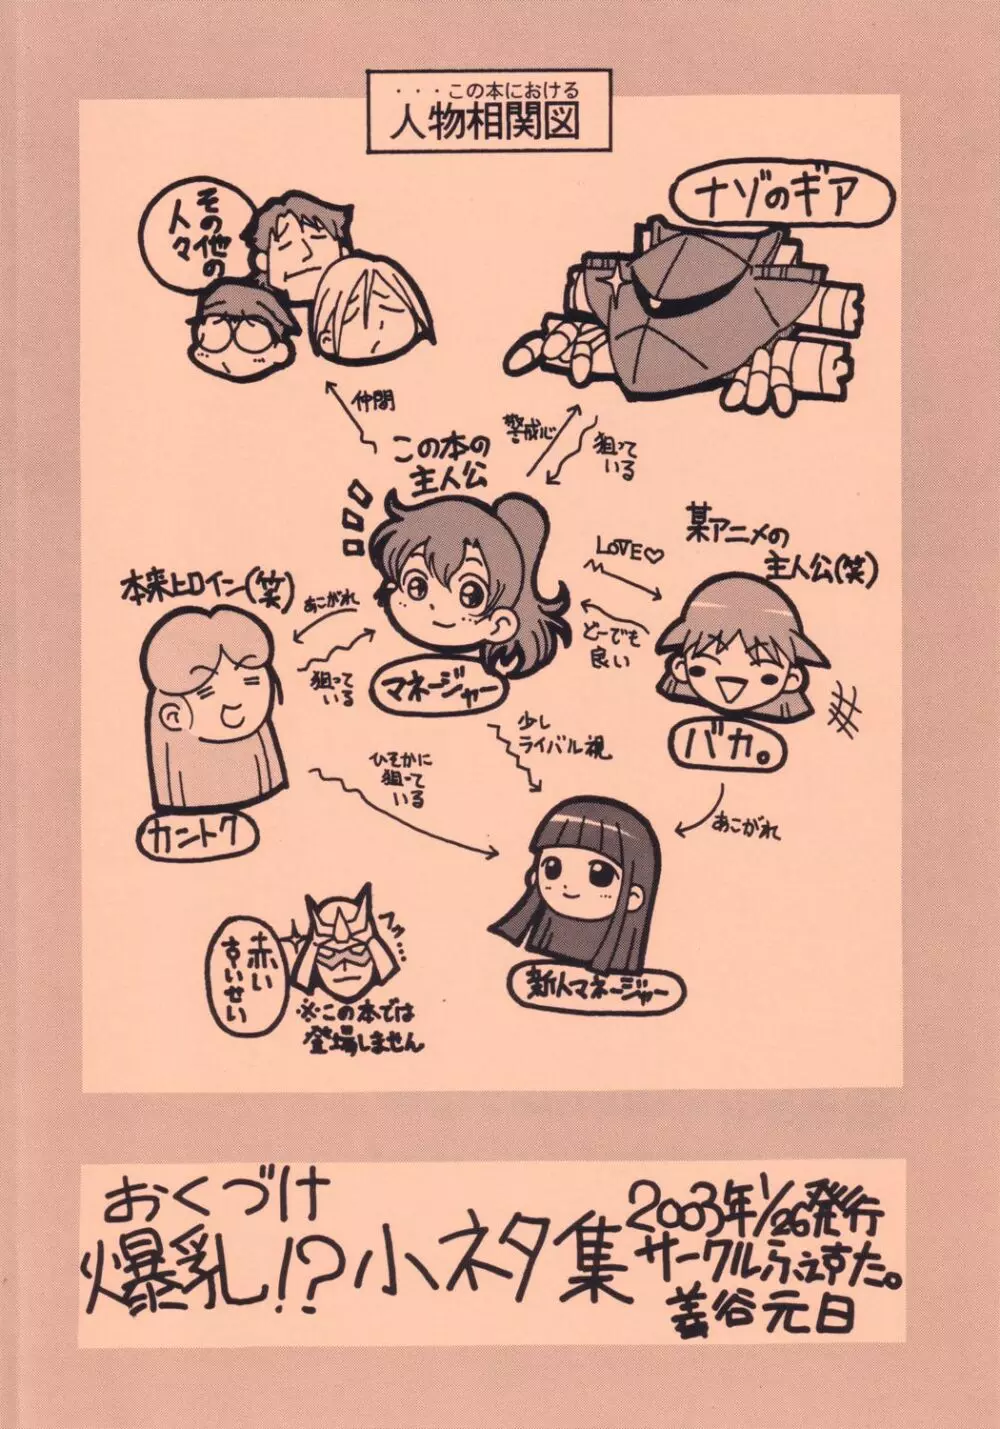 ・・・この本における
人物相関図
ナゾのギア
その他の
人々
仲間
警戒心
狙って
いる
この本の
主人公
某アニメの
主人公(笑)
LOVE♡
本来ヒロイン(笑)
あこがれ
どーでも
良い
狙って
いる
マネージャー
バカ。
少し
ライバル視
ひそかに
狙って
いる
カントク
あこがれ
赤い
すいせい
フッ…
※この本では
登場しません
新人マネージャー
おくづけ
爆乳!?小ネタ集
2003年1/26発行
サークルふぇすた。
善谷元日